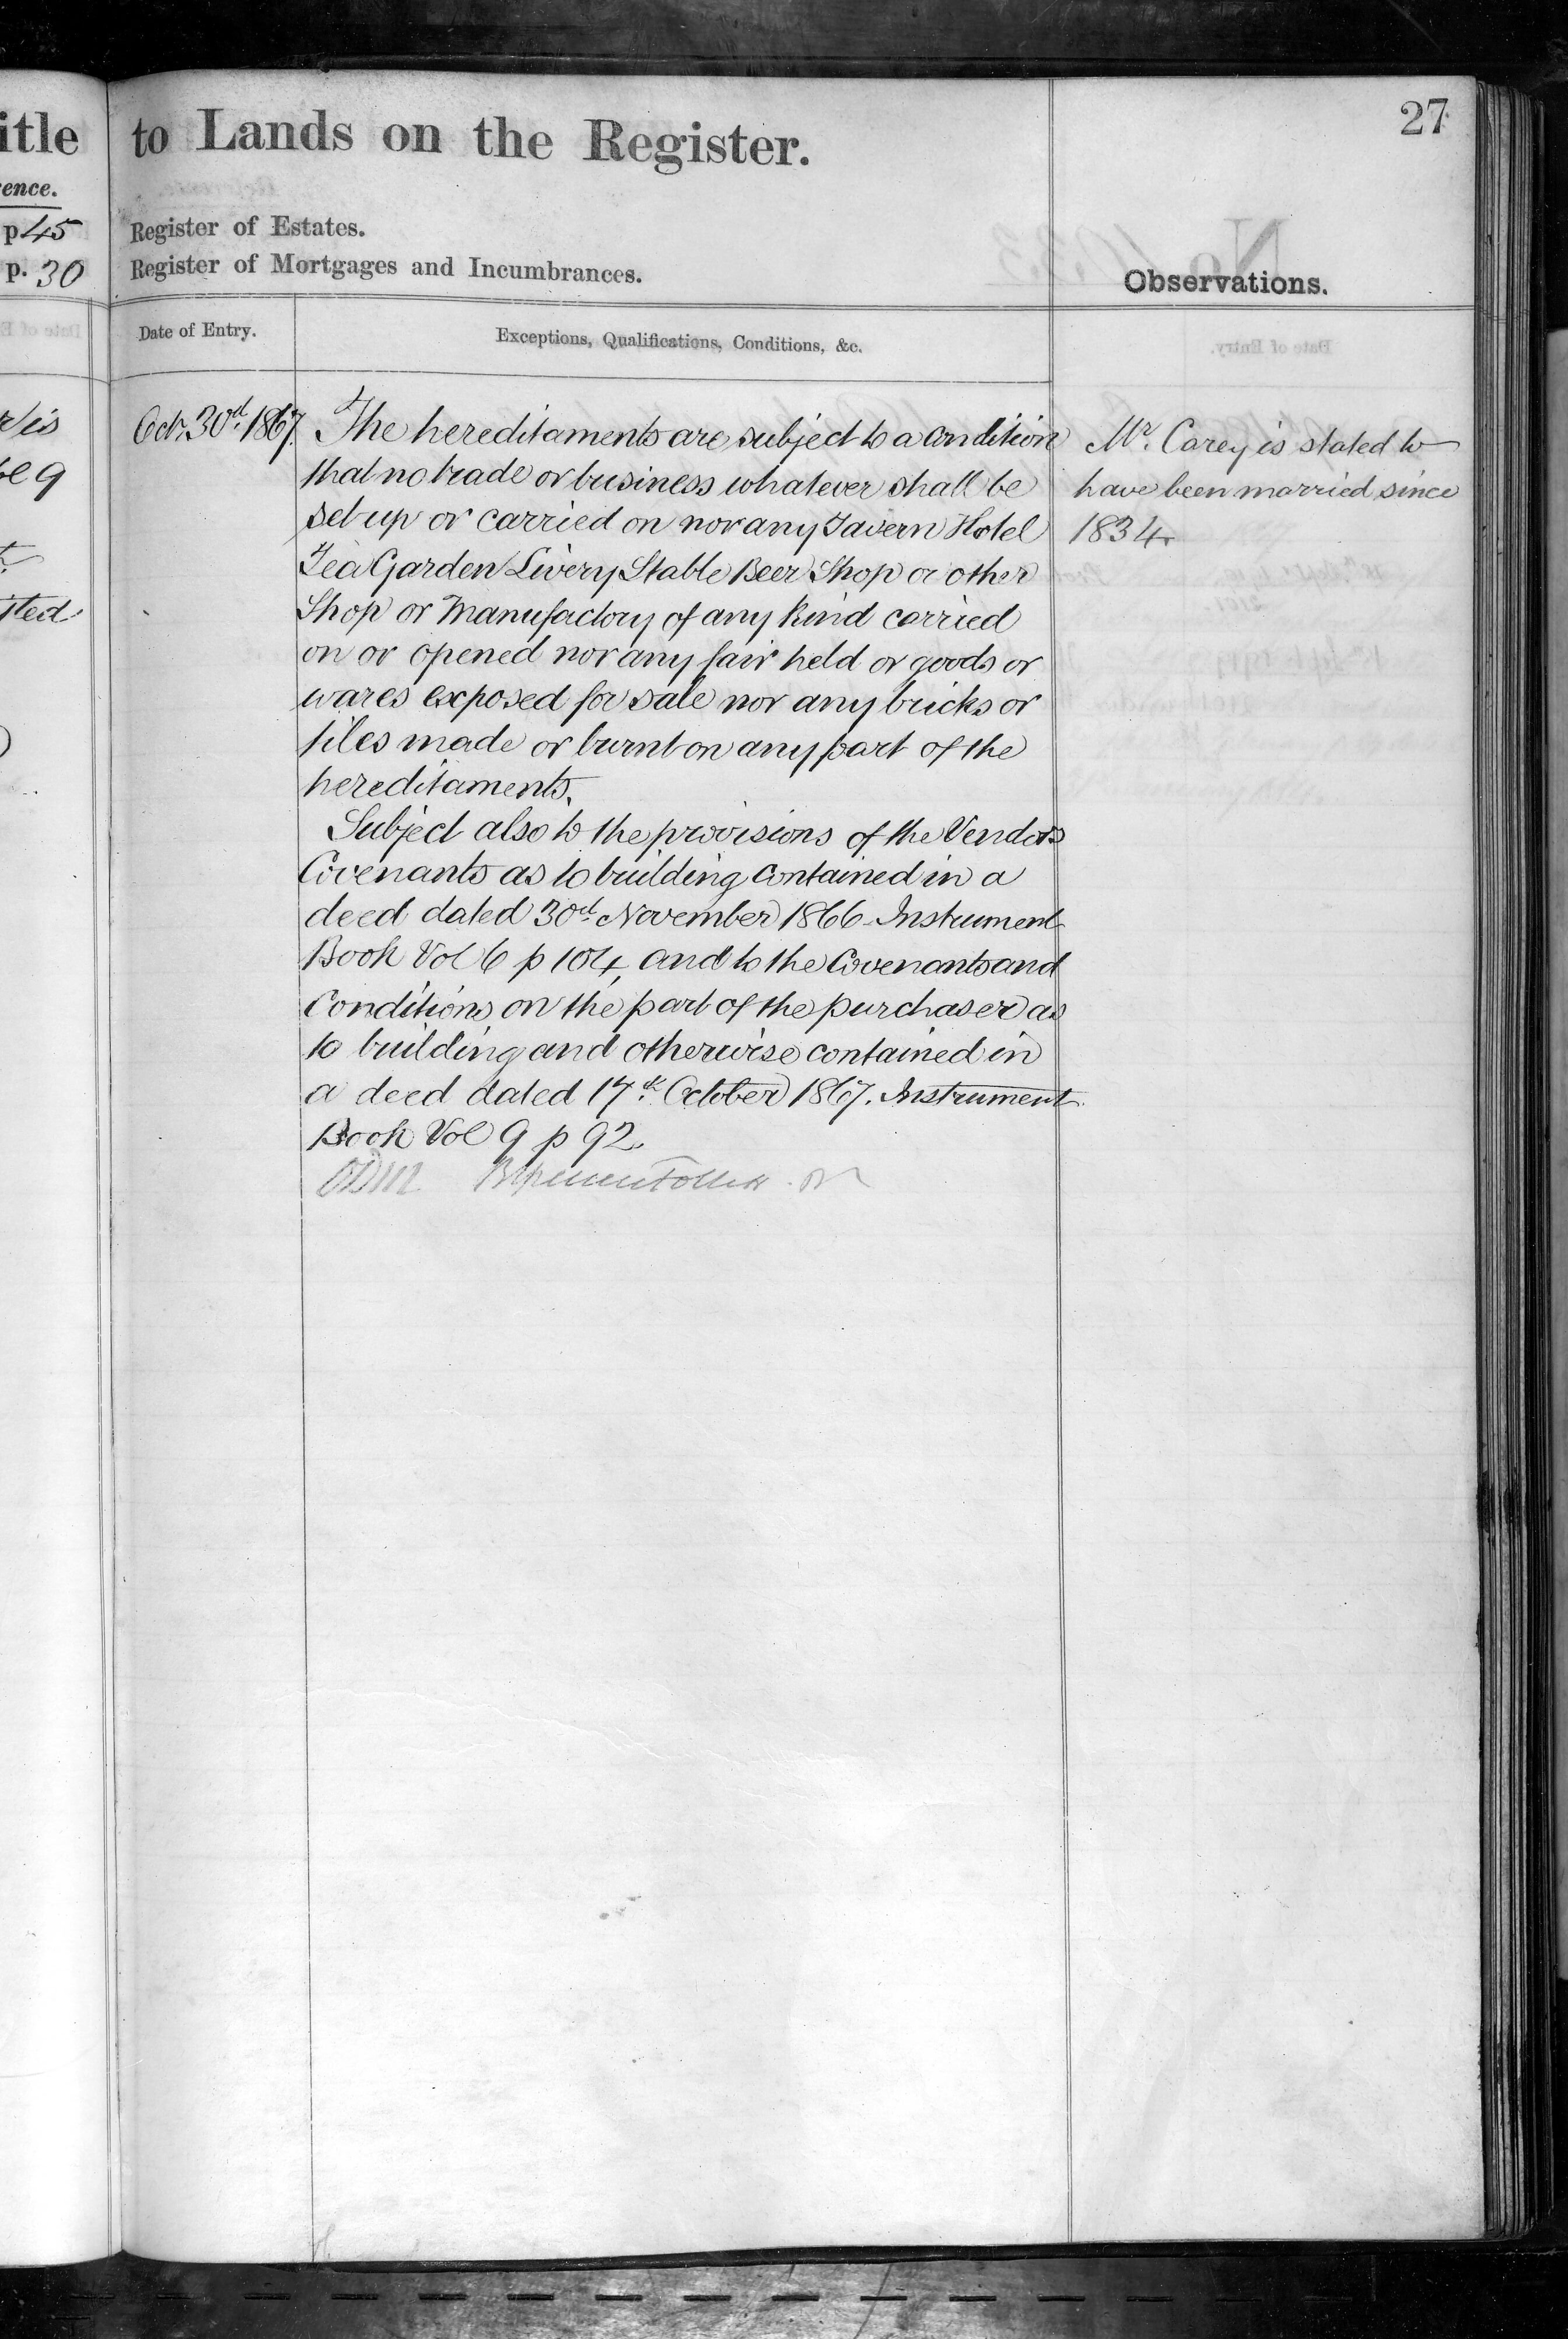 27
itle to Lands on the Register.
ence.
p 45 Register of Estates.
p. 30 Register of Mortgages and Incumbrances.
Observations.
Date of Entry. Exceptions, Qualifications, Conditions, &c.
Oct. 30d. 1867. The hereditaments are subject to a condition
that no trade or business whatever shall be
set up or carried on nor any Tavern Hotel
Tea Garden Livery Stable Beer Shop or other
Shop or Manufactory of any kind carried
on or opened nor any fair held or goods or
wares exposed for sale nor any bricks or
tiles made or burnt on any part of the
hereditaments.
Subject also to the provisions of the Vendors
Covenants as to building contained in a
deed dated 30d. November 1866 Instrument
Book Vol 6 p 104, and to the Covenants and
Conditions on the part of the purchaser as
to building and otherwise contained in
a deed dated 17th. October 1867. Instrument
Book Vol 9 p 92.
Mr. Carey is stated to
have been married since
1834.